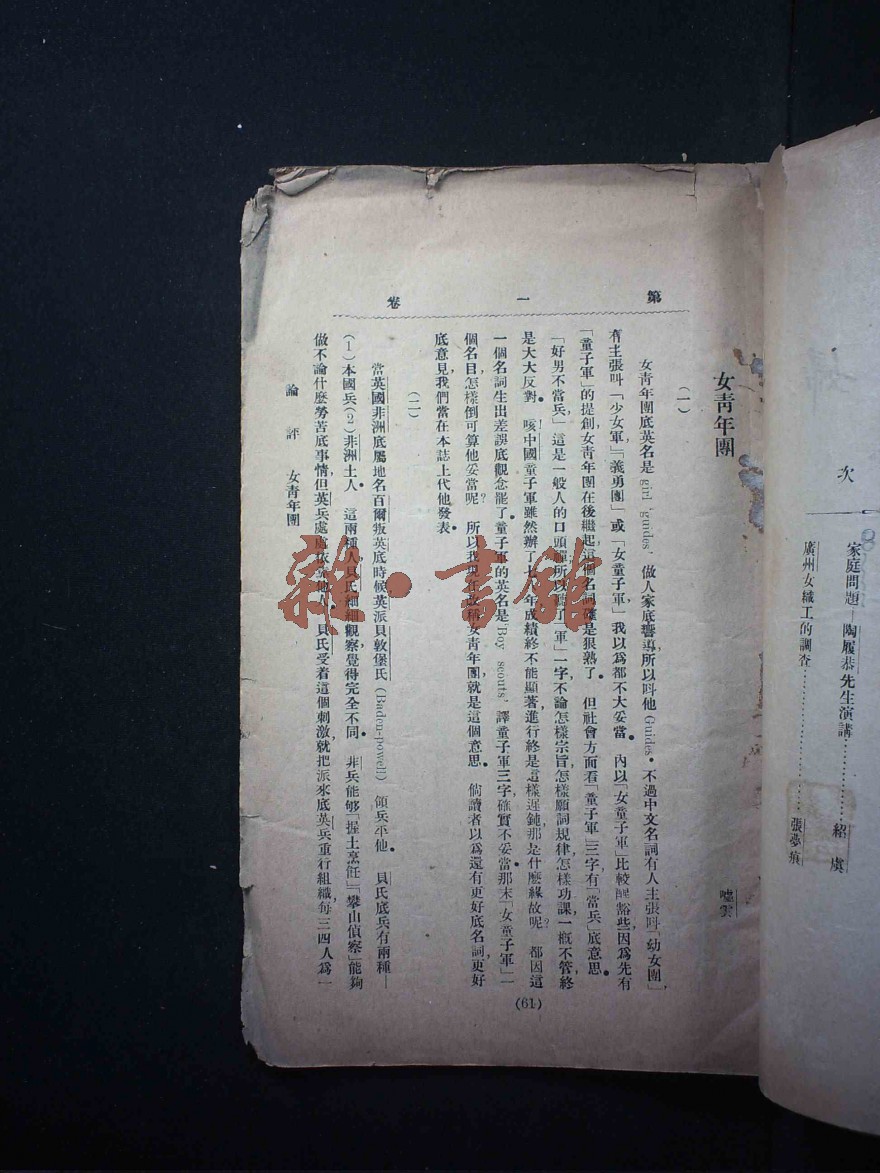 次
家庭問題 陶履恭先生演講…………紹虞
廣州女織工的調查…………張夢痕
女靑年團
嘘雲
(一)
女靑年團底英名是 girl guides, 做人家底嚮導,所以叫他 Guides。不過中文名詞有人主張叫「幼女團」,
有主張叫「少女軍」「義勇團」或「女童子軍」我以爲都不大妥當。 內以「女童子軍」比較醒豁些,因爲先有
「童子軍」的提創女靑年團在後繼起這個名詞確是狠熟了。 但社會方面看「童子軍」三字有「當兵」底意思。
「好男不當兵」這是一般人的口頭禪所以聽了「軍」一字不論怎樣宗旨怎樣願詞規律怎樣功課一概不管終
是大大反對。 咳!中國童子軍雖然辦了七八年成績終不能顯著進行終是這樣遲鈍那是什麼緣故呢? 都因這
一個名詞生出差誤底觀念罷了。童子軍的英名是 Boy scouts, 譯童子軍三字確實不妥當那末「女童子軍」一
個名目怎樣倒可算他妥當呢? 所以我現在改稱女靑年團就是這個意思。 倘讀者以爲還有更好底名詞,更好
底意見,我們當在本誌上代他發表。
(二)
當英國非洲底屬地名百爾叛英底時候英派貝敦堡氏 (Baden-powell) 領兵平他。 貝氏底兵有兩種—
(1)本國兵(2)非洲土人。 這兩種人貝氏細細觀察,覺得完全不同。 非兵能够「握土烹飪」「攀山偵察」能夠
做不論什麼勞苦底事情,但英兵處處依靠他人。貝氏受着這個刺激,就把派來底英兵重行組織,每三四人爲一
第一卷
論評 女靑年團
(61)
雜·書館